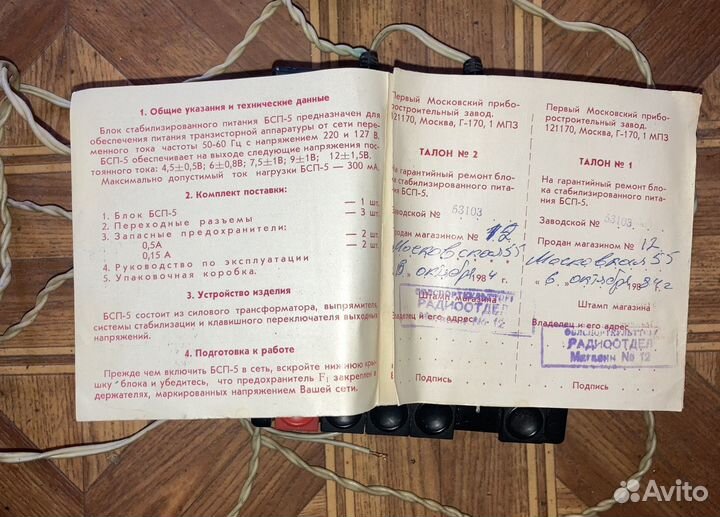 1. Общие указания и технические данные
Блок стабилизированного питания БСП-5 предназначен для
обеспечения питания транзисторной аппаратуры от сети пере-
менного тока частоты 50-60 Гц с напряжением 220 и 127 В.
БСП-5 обеспечивает на выходе следующие напряжения пос-
тоянного тока: 4,5±0,5В; 6±0,8В; 7,5±1В; 9±1В; 12±1,5В.
Максимально допустимый ток нагрузки БСП-5 — 300 мА.
2. Комплект поставки:
1. Блок БСП-5 — 1 шт.
2. Переходные разъемы — 3 шт.
3. Запасные предохранители:
0,5А — 2 шт.
0,15 А — 2 шт.
4. Руководство по эксплуатации
5. Упаковочная коробка.
3. Устройство изделия
БСП-5 состоит из силового трансформатора, выпрямителя,
системы стабилизации и клавишного переключателя выходных
напряжений.
4. Подготовка к работе
Прежде чем включить БСП-5 в сеть, вскройте нижнюю кры-
шку блока и убедитесь, что предохранитель F1 закреплен в
держателях, маркированных напряжением Вашей сети.
Первый Московский прибо-
ростроительный завод.
121170, Москва, Г-170, 1 МПЗ
ТАЛОН № 2
На гарантийный ремонт бло-
ка стабилизированного пита-
ния БСП-5.
Заводской № 53103
Продан магазином № 12
Московская 55
в. октябр 1984 г.
Штамп магазина
Владелец и его адрес
ОБЛСПОРТКУЛЬТТОРГ
РАДИООТДЕЛ
Магазин № 12
Подпись
Первый Московский прибо-
ростроительный завод.
121170, Москва, Г-170, 1 МПЗ
ТАЛОН № 1
На гарантийный ремонт бло-
ка стабилизированного пита-
ния БСП-5.
Заводской № 53103
Продан магазином № 12
Московская 55
"в." октябр 1984 г
Штамп магазина
Владелец и его адрес
ОБЛСПОРТКУЛЬТТОРГ
РАДИООТДЕЛ
Магазин № 12
Подпись
Avito